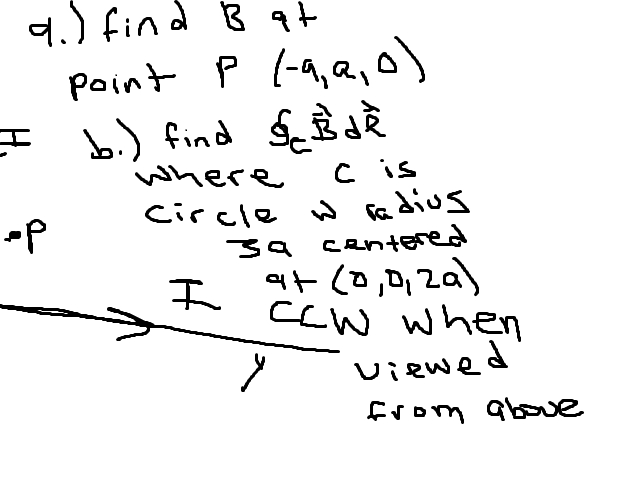 a.) find B at
point P (-a, a, 0)
I
b.) find ∮c B⃗ dl⃗
where c is
circle w radius
3a centered
at (0,0,2a)
CCW when
viewed
from above
•P
I
y